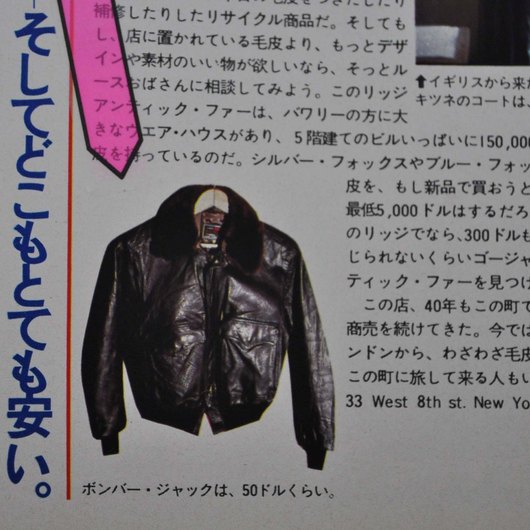 そしてどこもとても安い。
補修したりしたリサイクル商品だ。そしても
し、店に置かれている毛皮より、もっとデザ
インや素材のいい物が欲しいなら、そっとル
ースおばさんに相談してみよう。このリッジ
アンティック・ファーは、バワリーの方に大
きなウエア・ハウスがあり、5階建てのビルいっぱいに150,000
皮を持っているのだ。シルバー・フォックスやブルー・フォッ
皮を、もし新品で買おうと
最低5,000ドルはするだろ
のリッジでなら、300ドルも
じられないくらいゴージャ
ティック・ファーを見つけ
この店、40年もこの町で
商売を続けてきた。今では
ンドンから、わざわざ毛皮
この町に旅して来る人もい
33 West 8th st. New Yo
⬆イギリスから来た
キツネのコートは、
ボンバー・ジャックは、50ドルくらい。